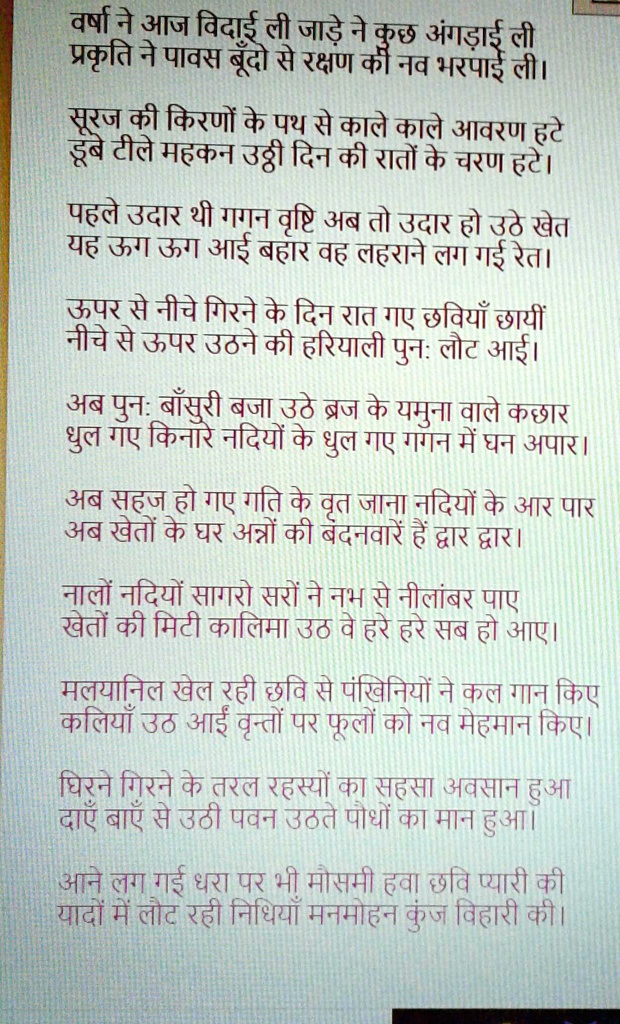 वर्षा ने आज विदाई ली जाड़े ने कुछ अंगड़ाई ली
प्रकृति ने पावस बूँदो से रक्षण की नव भरपाई ली।
सूरज की किरणों के पथ से काले काले आवरण हटे
डूबे टीले महकन उठ्ठी दिन की रातों के चरण हटे।
पहले उदार थी गगन वृष्टि अब तो उदार हो उठे खेत
यह ऊग ऊग आई बहार वह लहराने लग गई रेत।
ऊपर से नीचे गिरने के दिन रात गए छवियाँ छायीं
नीचे से ऊपर उठने की हरियाली पुन: लौट आई।
अब पुन: बाँसुरी बजा उठे ब्रज के यमुना वाले कछार
धुल गए किनारे नदियों के धुल गए गगन में घन अपार।
अब सहज हो गए गति के वृत जाना नदियों के आर पार
अब खेतों के घर अन्नों की बंदनवारें हैं द्वार द्वार।
नालों नदियों सागरो सरों ने नभ से नीलांबर पाए
खेतों की मिटी कालिमा उठ वे हरे हरे सब हो आए।
मलयानिल खेल रही छवि से पंखिनियों ने कल गान किए
कलियाँ उठ आईं वृन्तों पर फूलों को नव मेहमान किए।
घिरने गिरने के तरल रहस्यों का सहसा अवसान हुआ
दाएँ बाएँ से उठी पवन उठते पौधों का मान हुआ।
आने लग गई धरा पर भी मौसमी हवा छवि प्यारी की
यादों में लौट रही निधियाँ मनमोहन कुंज विहारी की।